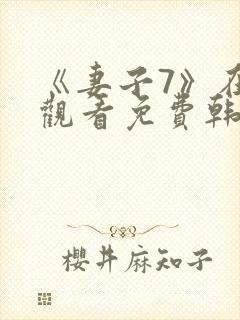 《妻子7》在
觀看免費韩
櫻井麻知子